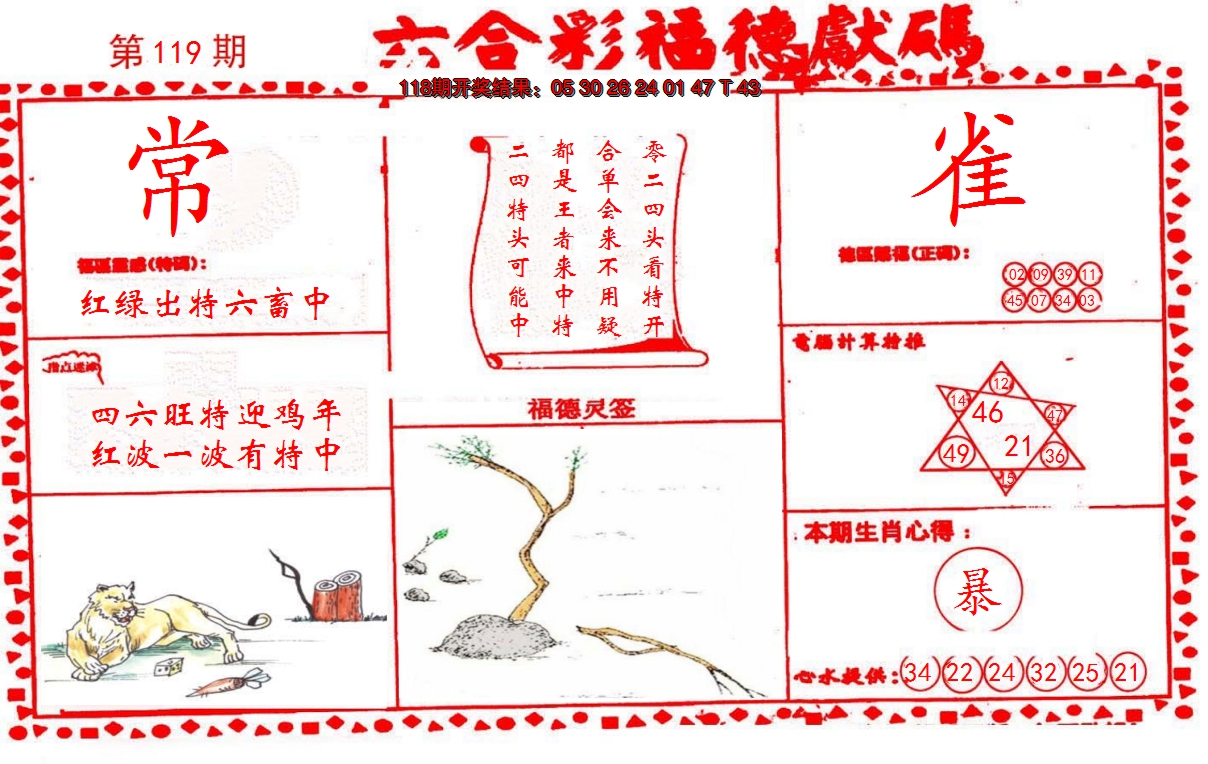 第119期
六合彩福德獻碼
118期开奖结果：05 30 26 24 01 47 T 43
常
福區靈感(特碼)：
红绿出特六畜中
指点迷津
四六旺特迎鸡年
红波一波有特中
零二四头看特开
合单会来不用疑
都是王者来中特
二四特头可能中
福德灵签
雀
德區賜福(正碼)：
02 09 39 11
45 07 34 03
電腦计算推
12
14 46 47
49 21 36
15
本期生肖心得：
暴
心水提供：34 22 24 32 25 21